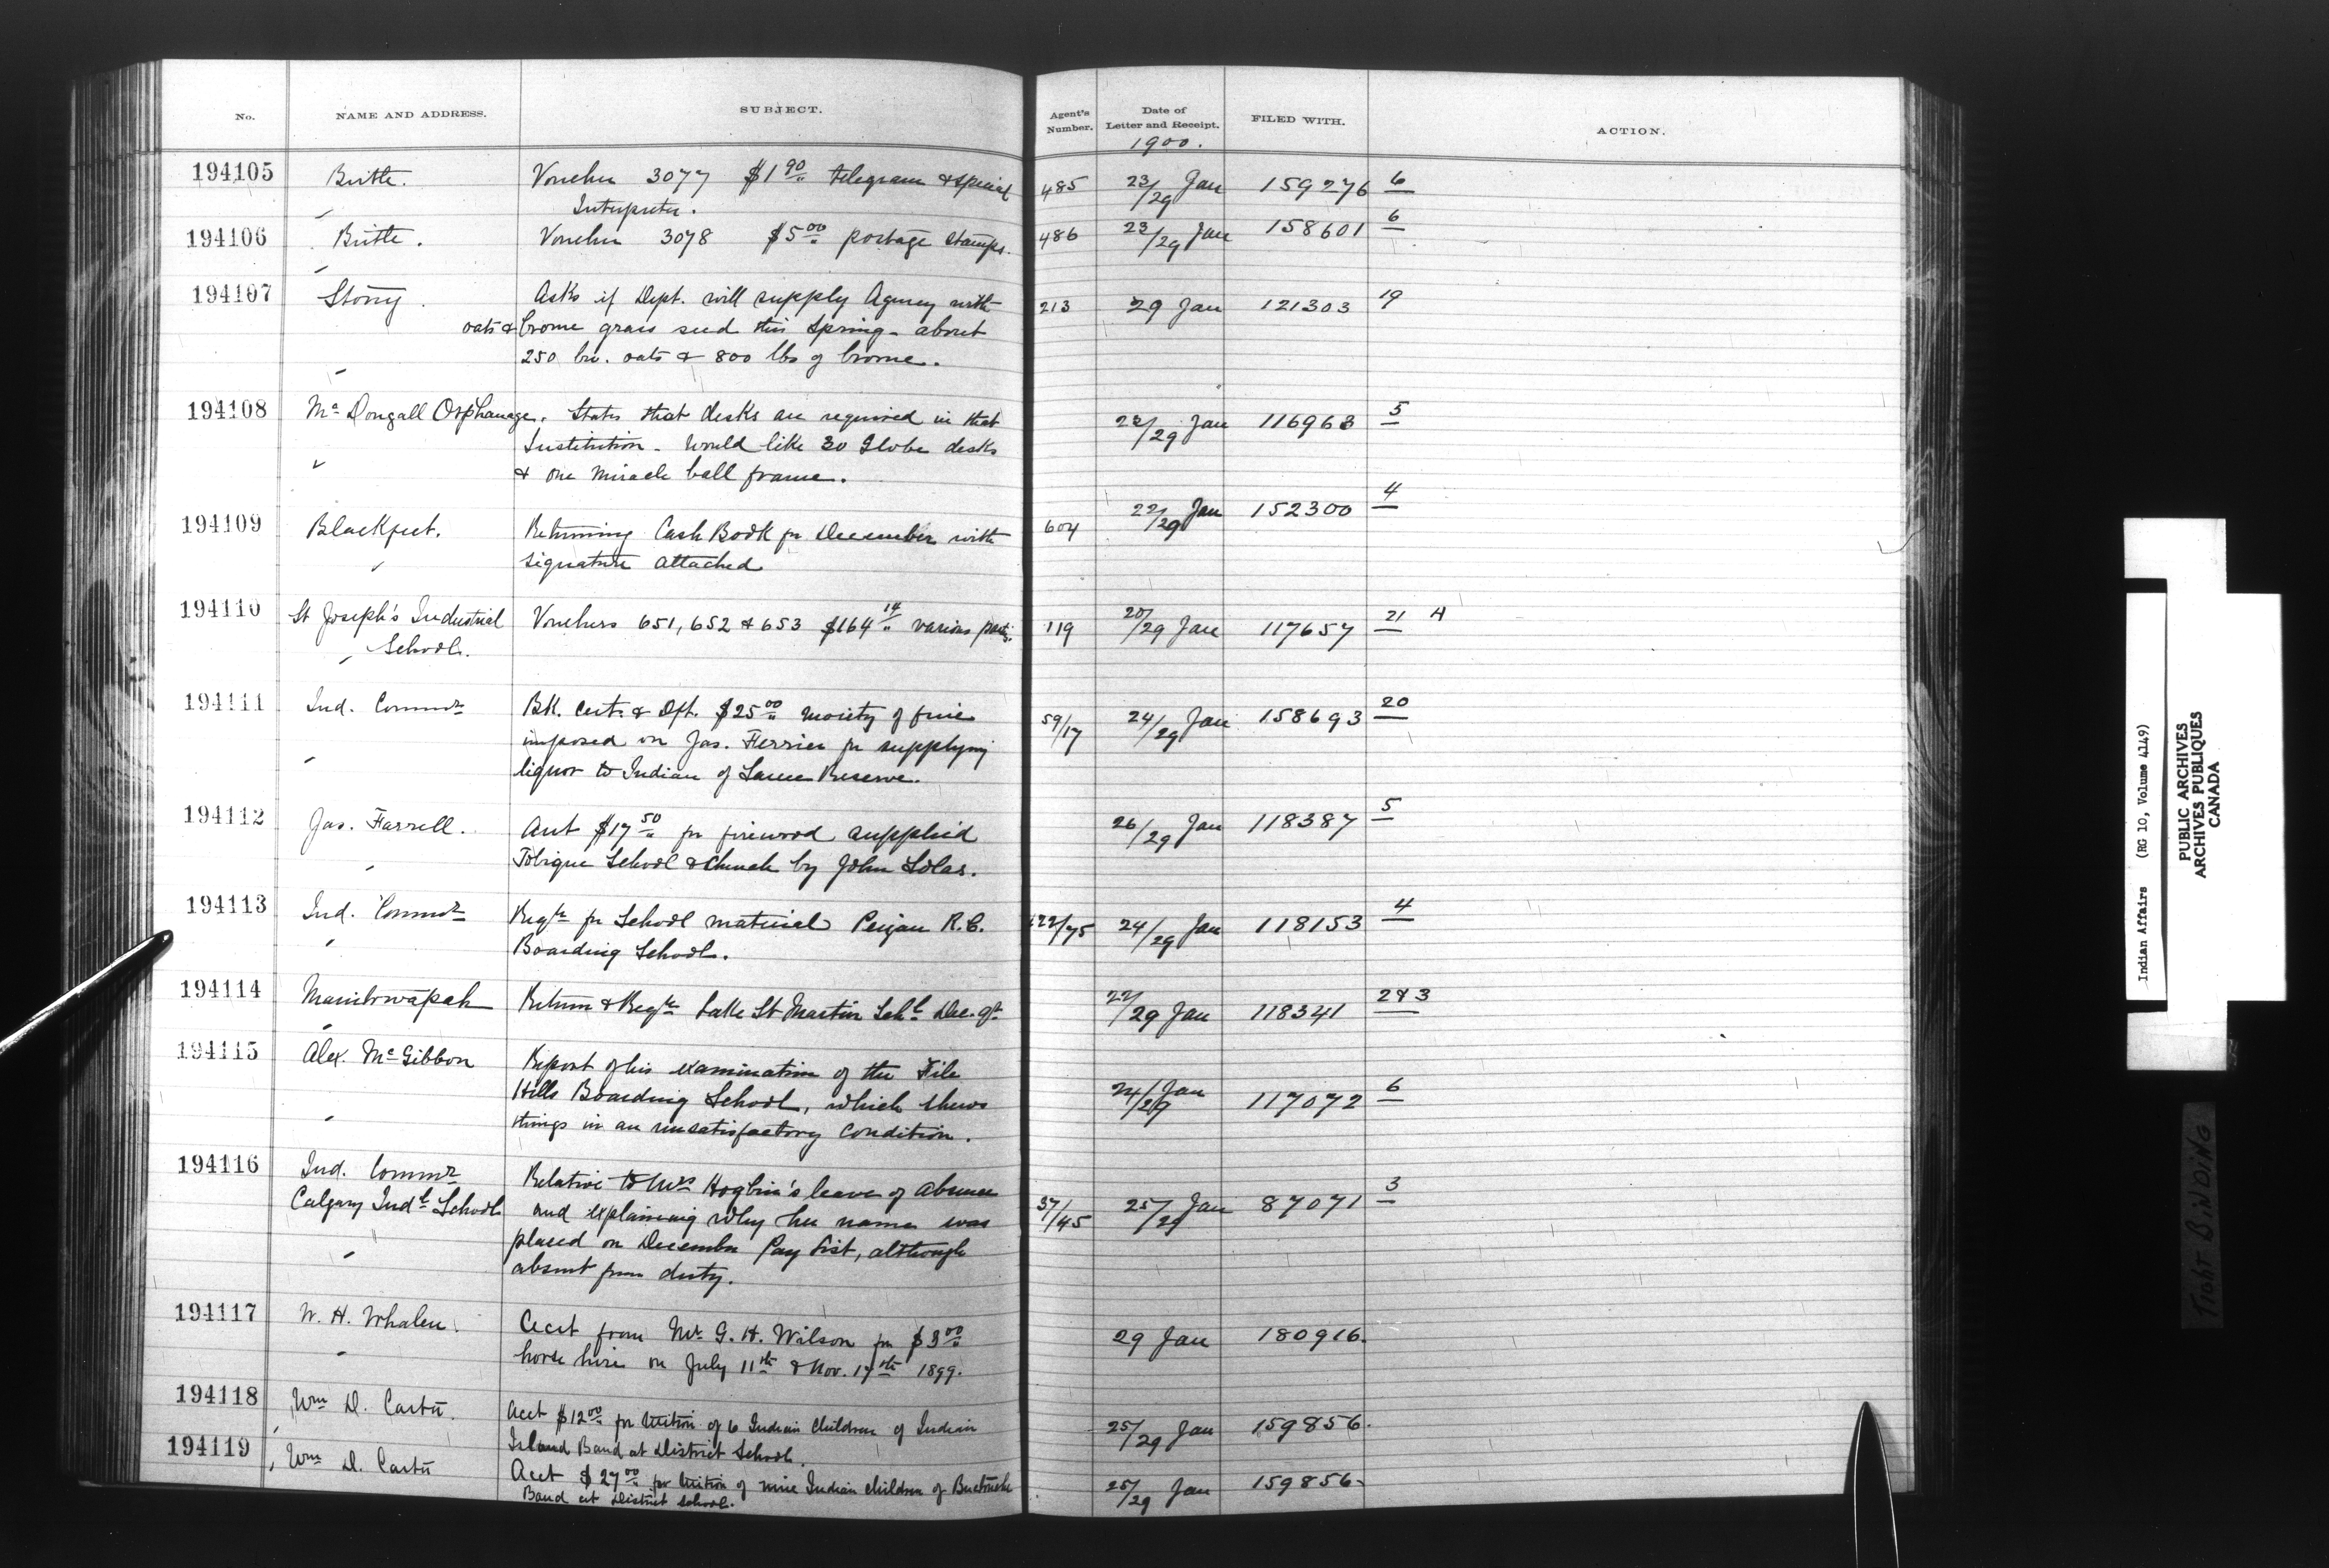 No. NAME AND ADDRESS. SUBJECT. Agent's Number. Date of Letter and Receipt. FILED WITH. ACTION.
1900.
194105 Birtle. Voucher 3077 $1 90/" telegram & special 485 23/29 Jan 159276 6
Interpreter.
194106 Birtle. Voucher 3078 $5 00/" postage stamps. 486 23/29 Jan 158601 6
194107 Stony. Asks if Dept. will supply Agency with 213 29 Jan 121303 19
oats & brome grass seed this Spring - about
250 bu. oats & 800 lbs of brome.
194108 Mc Dougall Orphanage. States that desks are required in that 22/29 Jan 116963 5
Institution - Would like 30 Globe desks
& one miracle ball frame.
194109 Blackfeet. Returning Cash Book for December with 604 22/29 Jan 152300 4
signature attached
194110 St Joseph's Industrial Vouchers 651, 652 & 653 $164 14/" various parties. 119 20/29 Jan 117657 21 H
School.
194111 Ind. Commr Bk. Cert. & Dft. $25 00/" moiety of fine 59/17 24/29 Jan 158693 20
imposed on Jas. Ferrier for supplying
liquor to Indian of Reserve.
194112 Jas. Farrell. Acct $17 50/" for firewood supplied 26/29 Jan 118387 5
Tobique School & Church by John Solas.
194113 Ind. Commr Reqn for School material Peigan R.C. 422/75 24/29 Jan 118153 4
Boarding School.
194114 Manitowapah Return & Reqn Lake St Martin Schl Dec. qr 22/29 Jan 118341 2 & 3
194115 Alex. McGibbon Report of his examination of the File 24/29 Jan 117072 6
Hills Boarding School, which shews
things in an unsatisfactory condition.
194116 Ind. Commr Relative to Mrs Hogbin's leave of absence 37/45 25/29 Jan 87071 3
Calgary Indl School and explaining why her name was
placed on December Pay List, although
absent from duty.
194117 W. H. Whalen. Acct from Mr. G. H. Wilson for $3 00/" 29 Jan 180916.
horse hire on July 11th & Nov. 17th 1899.
194118 Wm D. Carter. Acct $12 00/" for tuition of 6 Indian children of Indian 25/29 Jan 159856.
Island Band at District School.
194119 Wm D. Carter Acct $27 00/" for tuition of nine Indian children of Buctouche 25/29 Jan 159856-
Band at District School.
Indian Affairs (RG 10, Volume 4149)
PUBLIC ARCHIVES
ARCHIVES PUBLIQUES
CANADA
TIGHT BINDING